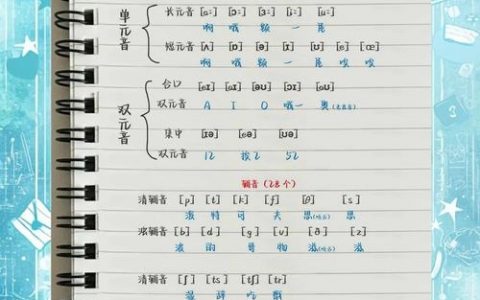 单元音
长元音 [ɑː] [ɔː] [ɜː] [iː] [uː]
啊 哦 额 一 屋
短元音 [ʌ] [ɒ] [ə] [ɪ] [ʊ] [e] [æ]
啊 哦 额 一 屋
双元音
合口 [eɪ] [aɪ] [əʊ] [ɔɪ] [aʊ]
双元音 A I O 哦一 奥
集中 [ɪə] [eə] [ʊə]
双元音
辅音 (28个)
清辅音 [p] [t] [k] [f] [θ] [s]
泼 特 可 夫 思(咬舌) 思
浊辅音 [b] [d] [g] [v] [ð] [z]
波 的 哥 物 滋(咬舌) 滋
清辅音 [ʃ] [ts] [tʃ] [tr]